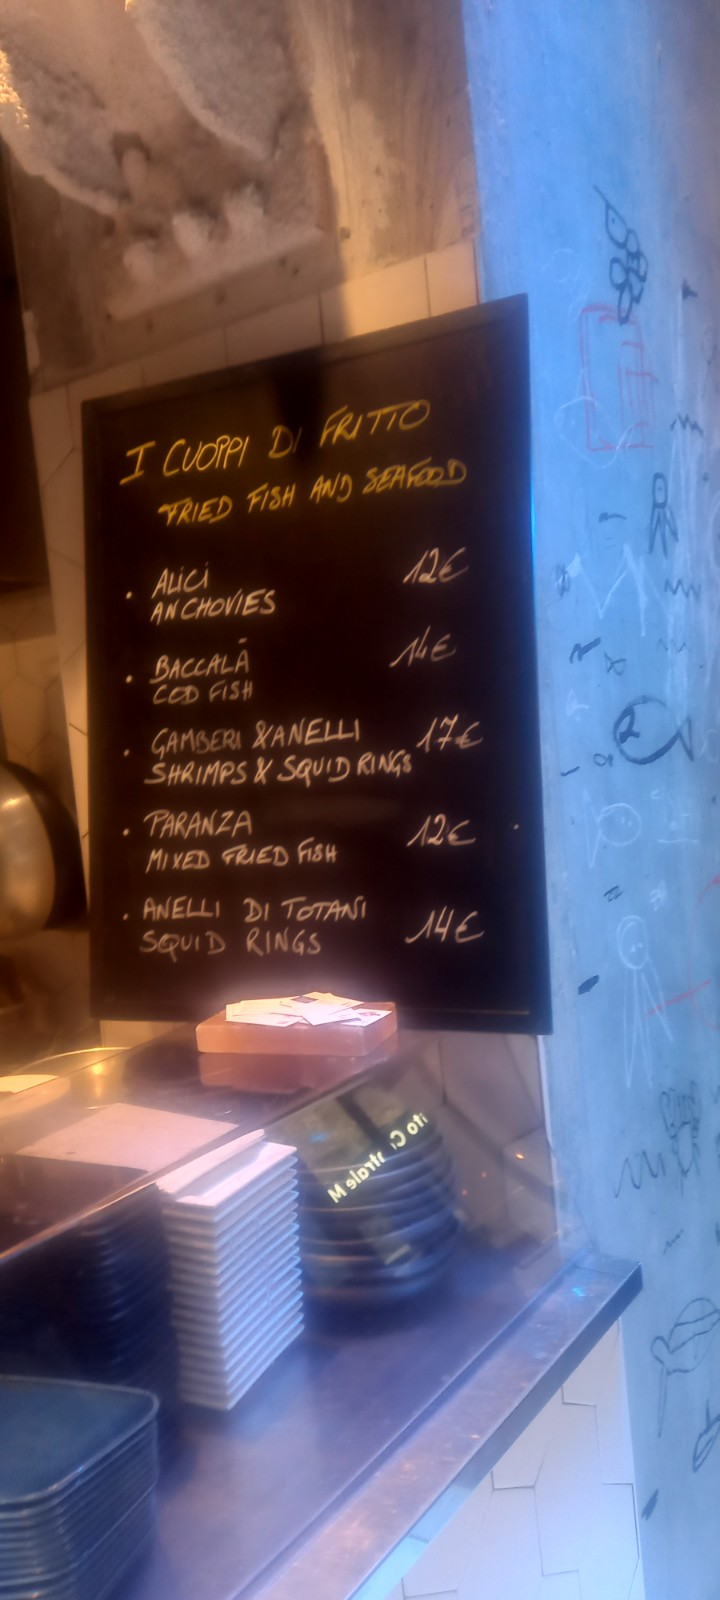 I CUOPPI DI FRITTO
FRIED FISH AND SEAFOOD
• ALICI 12€
ANCHOVIES
• BACCALÀ 14€
COD FISH
• GAMBERI & ANELLI 17€
SHRIMPS & SQUID RINGS
• PARANZA 12€
MIXED FRIED FISH
• ANELLI DI TOTANI 14€
SQUID RINGS